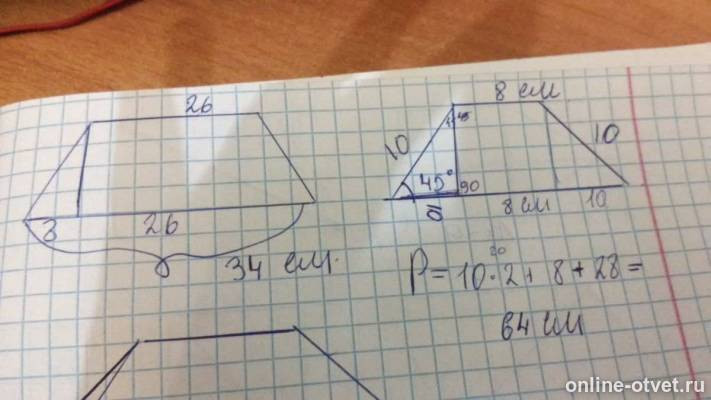 26
3
26
34 см.
8 см
45
10
10
45°
90
10
8 см
10
20
P = 10·2 + 8 + 28 =
64 см
online-otvet.ru